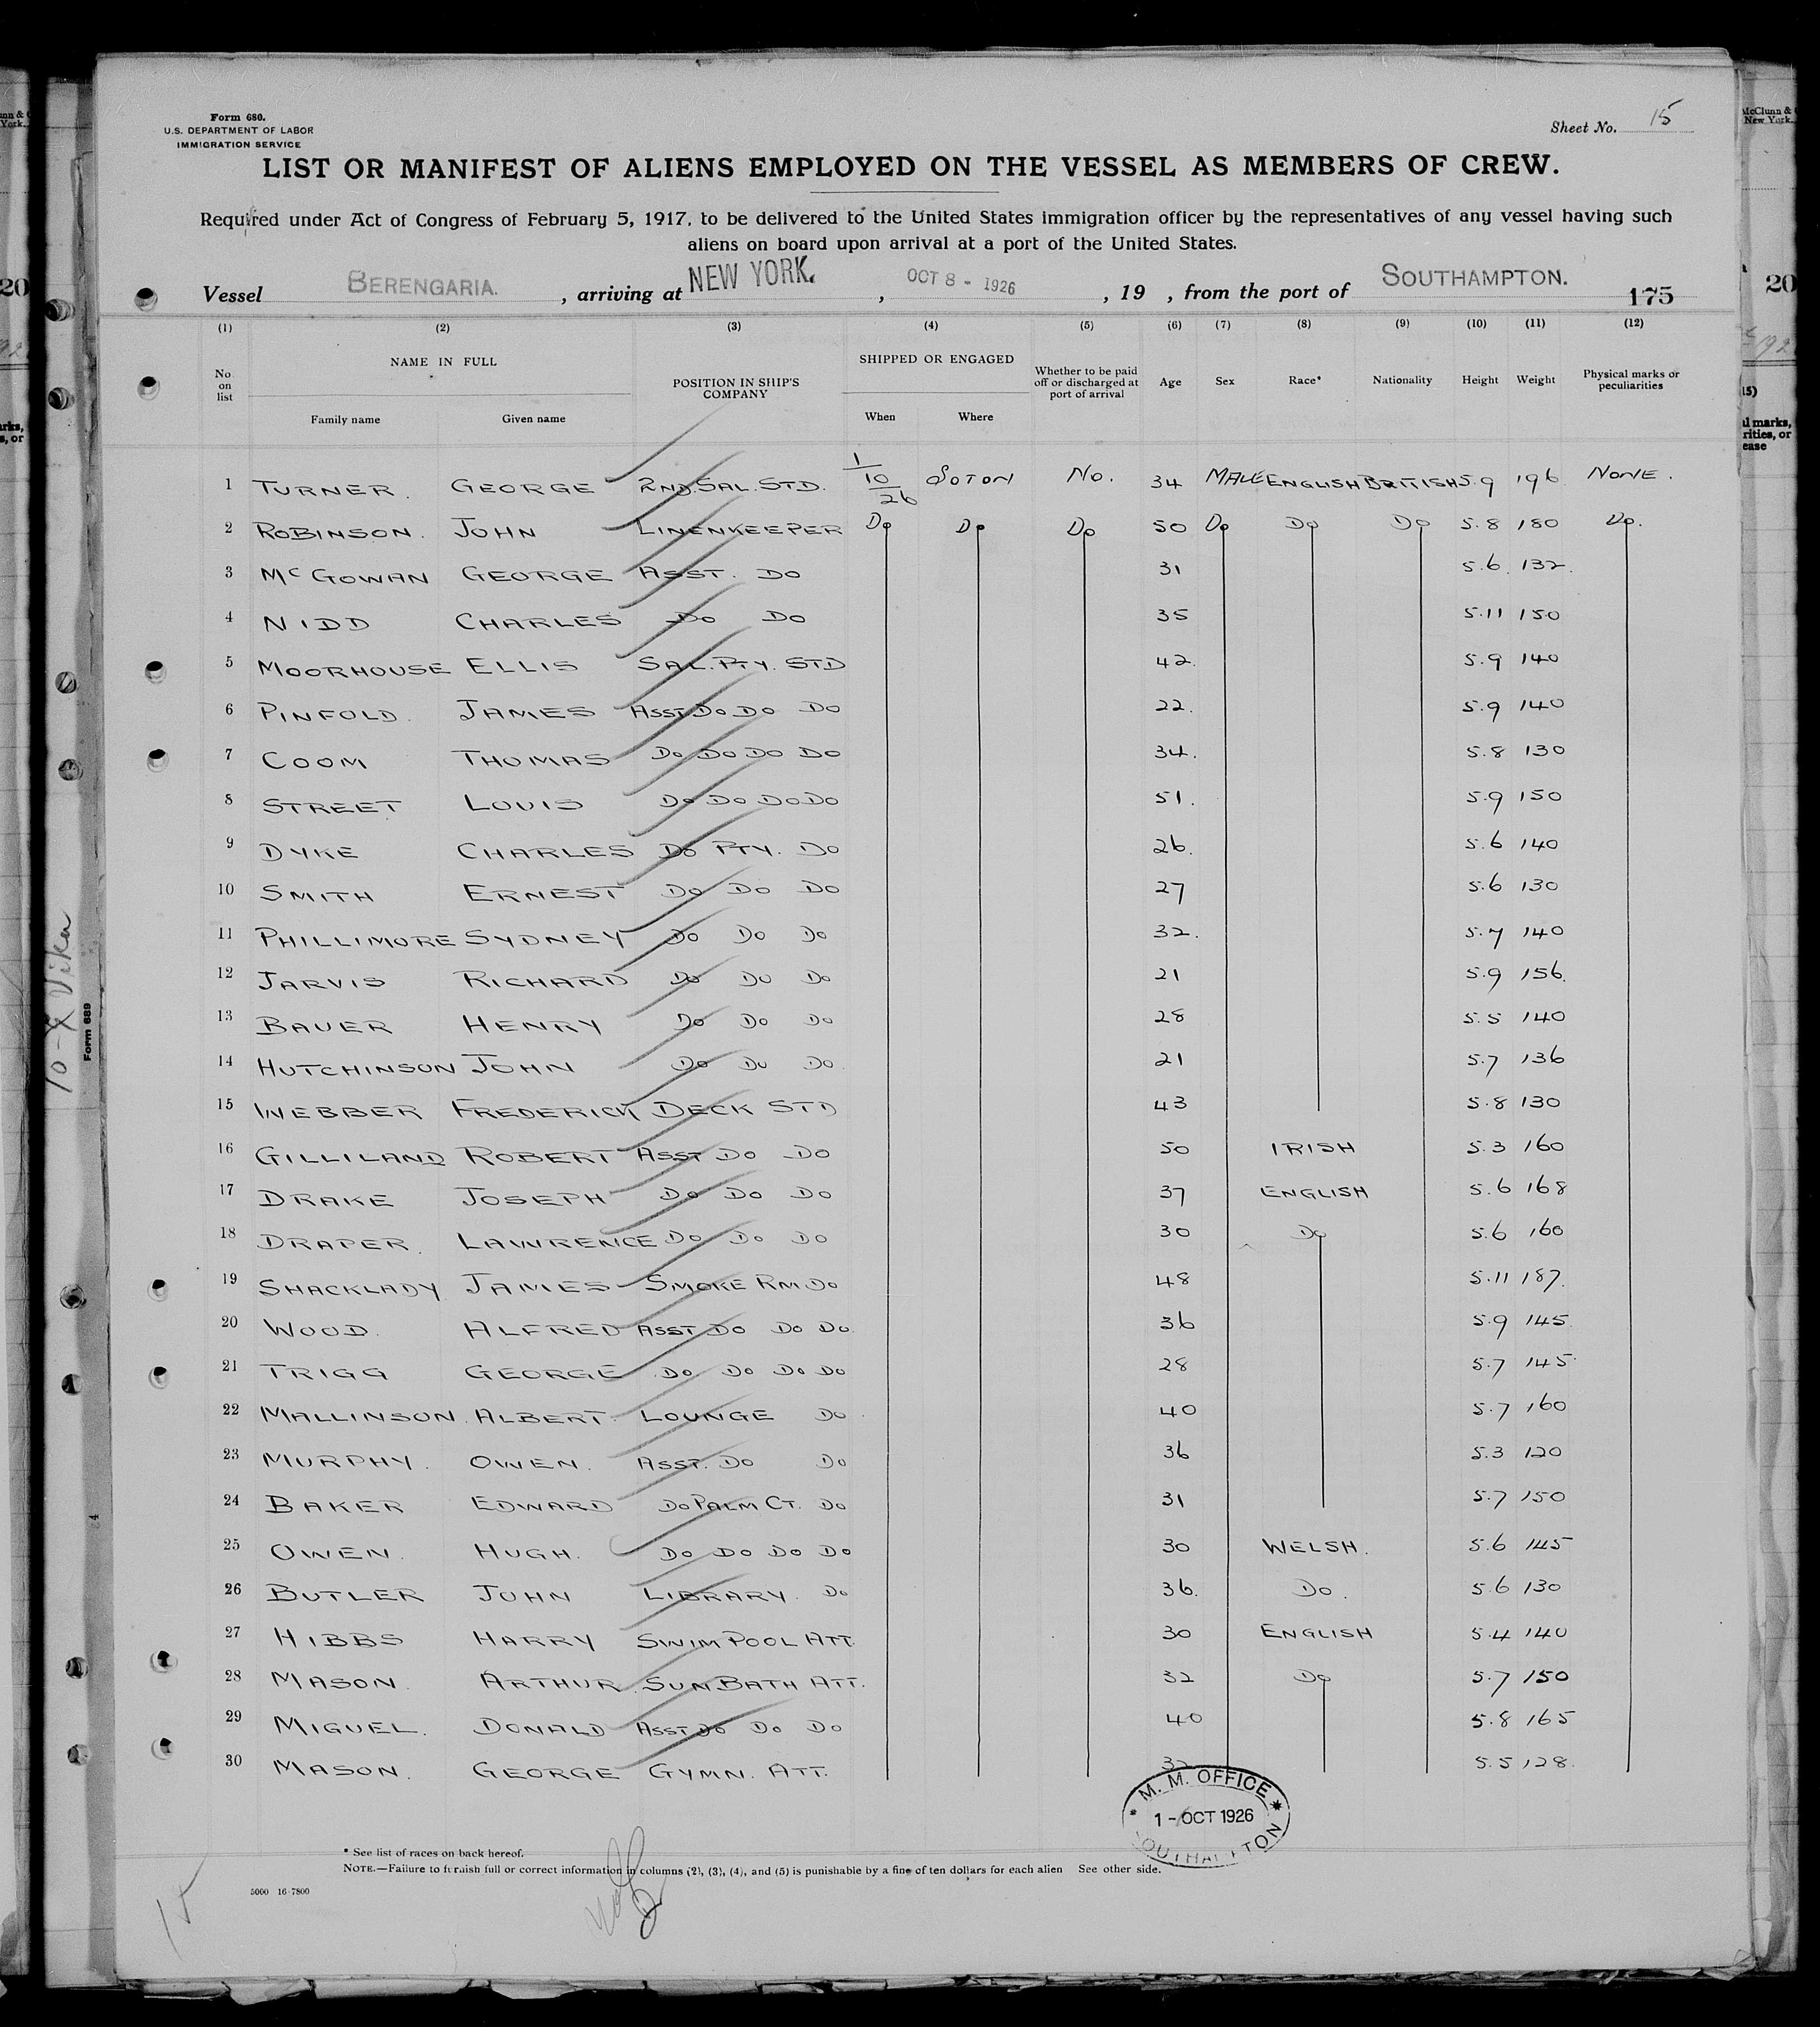 Form 680.
U.S. DEPARTMENT OF LABOR
IMMIGRATION SERVICE
Sheet No. 15
LIST OR MANIFEST OF ALIENS EMPLOYED ON THE VESSEL AS MEMBERS OF CREW.
Required under Act of Congress of February 5, 1917, to be delivered to the United States immigration officer by the representatives of any vessel having such
aliens on board upon arrival at a port of the United States.
Vessel BERENGARIA. , arriving at NEW YORK. , OCT 8 - 1926 , 19 , from the port of SOUTHAMPTON. 175
(1) (2) (3) (4) (5) (6) (7) (8) (9) (10) (11) (12)
No. on list NAME IN FULL Family name Given name POSITION IN SHIP'S COMPANY SHIPPED OR ENGAGED When Where Whether to be paid off or discharged at port of arrival Age Sex Race* Nationality Height Weight Physical marks or peculiarities
1 TURNER. GEORGE 2ND. SAL. STD. 1/10/26 SOTON NO. 34 MALE ENGLISH BRITISH 5.9 196 NONE.
2 ROBINSON. JOHN LINENKEEPER Do Do Do 50 Do Do Do 5.8 180 Do.
3 McGOWAN GEORGE ASST. DO 31 5.6. 132.
4 NIDD CHARLES DO DO 35 5.11 150
5 MOORHOUSE ELLIS SAL. PTY. STD 42. 5.9 140
6 PINFOLD. JAMES ASST DO DO DO 22. 5.9 140
7 COOM THOMAS DO DO DO DO 34. 5.8 130
8 STREET LOUIS DO DO DO DO 51. 5.9 150
9 DYKE CHARLES DO PTY. DO 26. 5.6 140
10 SMITH ERNEST DO DO DO 27 5.6 130
11 PHILLIMORE SYDNEY DO DO DO 32. 5.7 140
12 JARVIS RICHARD DO DO DO 21 5.9 156.
13 BAUER HENRY DO DO DO 28 5.5 140
14 HUTCHINSON JOHN DO DO DO 21 5.7 136
15 WEBBER FREDERICK DECK STD 43 5.8 130
16 GILLILAND ROBERT ASST DO DO 50 IRISH 5.3 160
17 DRAKE JOSEPH DO DO DO 37 ENGLISH 5.6 168
18 DRAPER. LAWRENCE DO DO DO 30 Do 5.6 160
19 SHACKLADY JAMES SMOKE RM DO 48 5.11 187.
20 WOOD. ALFRED ASST DO DO DO. 36 5.9 145.
21 TRIGG GEORGE DO DO DO DO 28 5.7 145.
22 MALLINSON. ALBERT. LOUNGE DO 40 5.7 160
23 MURPHY. OWEN. ASST. DO DO 36 5.3 120
24 BAKER EDWARD DO PALM CT. DO 31 5.7 150
25 OWEN. HUGH. DO DO DO DO 30 WELSH. 5.6 145
26 BUTLER JOHN LIBRARY. DO 36. DO. 5.6 130
27 HIBBS HARRY SWIM POOL ATT. 30 ENGLISH 5.4 140
28 MASON. ARTHUR. SUN BATH ATT. 32 Do 5.7 150
29 MIGUEL. DONALD ASST DO DO DO 40 5.8 165
30 MASON. GEORGE GYMN. ATT. 32 5.5 128.
* M. M. OFFICE *
1 - OCT 1926
SOUTHAMPTON
* See list of races on back hereof.
NOTE.—Failure to furnish full or correct information in columns (2), (3), (4), and (5) is punishable by a fine of ten dollars for each alien See other side.
5000 16-7800
15
Form 689
20
20